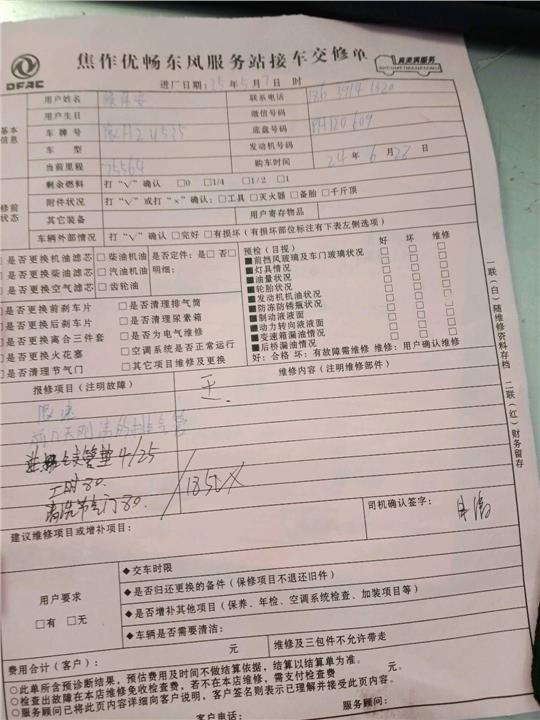 DFAC
焦作优畅东风服务站接车交修单
真美满服务
进厂日期：25年5月7日 时
基本信息
用户姓名 联系电话
用户生日 微信号码
车牌号 底盘号码
车型 发动机号码
当前里程 75564 购车时间 24年6月 日
修前状态
剩余燃料 打“√”确认 □0 □1/4 □1/2 □1
附件状况 打“√”或打“×”确认：□工具 □灭火器 □备胎 □千斤顶
其它装备 用户寄存物品
车辆外部情况 打“√”确认 □完好 □有损坏（有损坏部位标注有下表左侧选项）
□是否更换机油滤芯 □柴油机油 是否定件：是 □否□
□是否更换柴油滤芯 □汽油机油 明细：
□是否更换空气滤芯 □齿轮油
□是否更换前刹车片 □是否清理排气筒
□是否更换后刹车片 □是否清理尿素箱
□是否更换离合三件套 □是否为电气维修
□是否更换火花塞 □空调系统是否正常运行
□是否清理节气门 □其它项目维修及更换
预检（目视） 好 坏 维修
■前挡风玻璃及车门玻璃状况 □ □ □
■灯具情况 □ □ □
■油量状况 □ □ □
■轮胎状况 □ □ □
■发动机机油状况 □ □ □
■防冻防锈瓶状况 □ □ □
■制动液液面 □ □ □
■动力转向液液面 □ □ □
■变速箱漏油情况 □ □ □
■后桥漏油情况 □ □ □
好：合格 坏：有故障需维修 维修：用户确认维修
报修项目（注明故障） 维修内容（注明维修部件）
限速
管垫 4/25
工时 80.
清洗节气门 80.
185
司机确认签字：
建议维修项目或增补项目：
用户要求
□有 □无
◆交车时限
◆是否归还更换的备件（保修项目不退还旧件）
◆是否增补其他项目（保养、年检、空调系统检查、加装项目等）
◆车辆是否需要清洁：
费用合计（客户）： 元 维修及三包件不允许带走
○此单所含预诊断结果，预估费用及时间不做结算依据，结算以结算单为准。
○检查出故障在本店维修免收检查费，若不在本店维修，需支付检查费 元。
○服务顾问已将此页内容详细向客户说明，客户签名则表示已理解并接受此页内容。
客户电话： 服务顾问：
一联（白）随维修资料存档
二联（红）财务留存